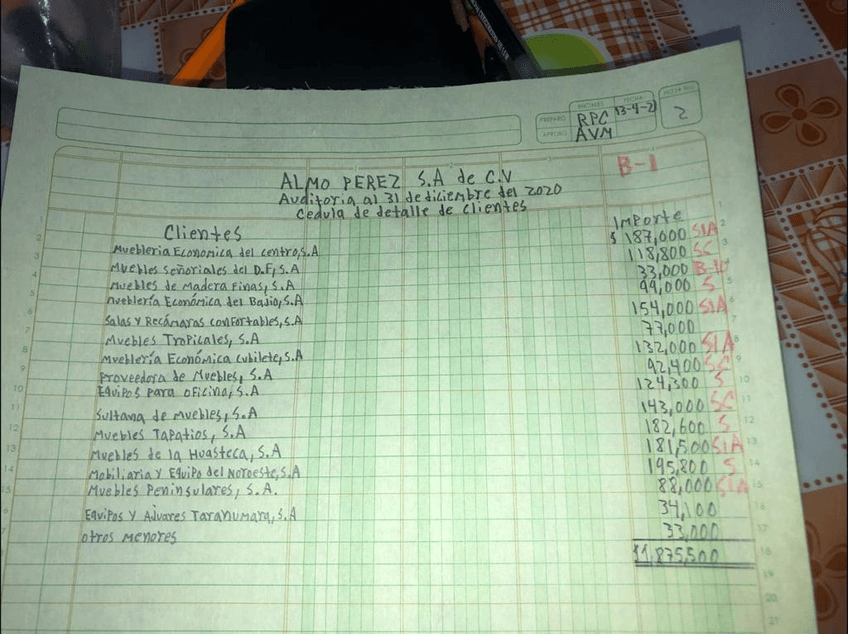 INICIALES FECHA HOJA NO.
PREPARO RPC 13-4-21 2
APROBO AVM
B-1
ALMO PEREZ S.A de C.V
Auditoria al 31 de diciembre del 2020
Cedula de detalle de clientes
Clientes Importe
Muebleria Economica del centro, S.A $ 187,000 SIA
Muebles Señoriales del D.F, S.A 118,800 SC
Muebles de Madera Finas, S.A 33,000
Mueblería Económica del Bajio, S.A 99,000 S
Salas y Recámaras confortables, S.A 154,000 SIA
Muebles Tropicales, S.A 77,000
Mueblería Económica Cubilete, S.A 132,000 SIA
Proveedora de Muebles, S.A 92,400 SC
Equipos para oficina, S.A 124,300 S
Sultana de Muebles, S.A 143,000 SC
Muebles Tapatios, S.A 182,600 S
Muebles de la Huasteca, S.A 181,500 SIA
Mobiliaria y Equipo del Noroeste, S.A 195,800 S
Muebles Peninsulares, S.A. 88,000 SIA
Equipos y Ajuares Tarahumara, S.A 34,100
otros menores 33,000
$1,875,500